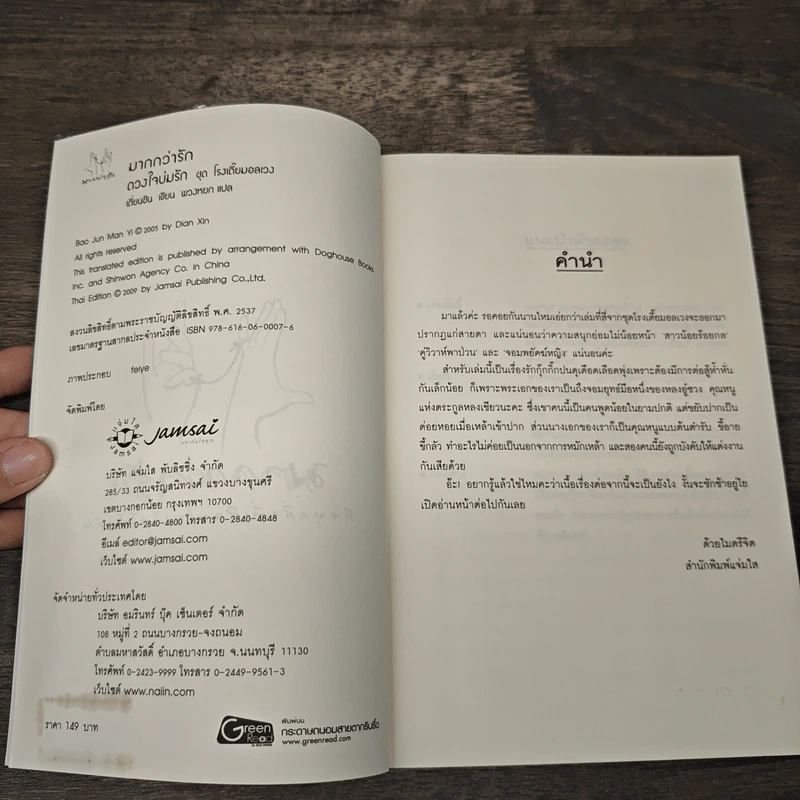 มากกว่ารัก
มากกว่ารัก
ดวงใจบ่มรัก ชุด โรงเตี๊ยมอลเวง
เตี่ยนซิน เขียน พวงหยก แปล
Bao Jun Man Yi © 2005 by Dian Xin
All rights reserved
This translated edition is published by arrangement with Doghouse Books
Inc. and Shinwon Agency Co. in China
Thai Edition © 2009 by Jamsai Publishing Co.,Ltd.
สงวนลิขสิทธิ์ตามพระราชบัญญัติลิขสิทธิ์ พ.ศ. 2537
เลขมาตรฐานสากลประจำหนังสือ ISBN 978-616-06-0007-6
ภาพประกอบ feiye
จัดพิมพ์โดย
แจ่มใส
jamsai
jamsai
บริษัท แจ่มใส พับลิชชิ่ง จำกัด
285/33 ถนนจรัญสนิทวงศ์ แขวงบางขุนศรี
เขตบางกอกน้อย กรุงเทพฯ 10700
โทรศัพท์ 0-2840-4800 โทรสาร 0-2840-4848
อีเมล์ editor@jamsai.com
เว็บไซต์ www.jamsai.com
จัดจำหน่ายทั่วประเทศโดย
บริษัท อมรินทร์ บุ๊ค เซ็นเตอร์ จำกัด
108 หมู่ที่ 2 ถนนบางกรวย-จงถนอม
ตำบลมหาสวัสดิ์ อำเภอบางกรวย จ.นนทบุรี 11130
โทรศัพท์ 0-2423-9999 โทรสาร 0-2449-9561-3
เว็บไซต์ www.naiin.com
ราคา 149 บาท
Green
Read
พิมพ์บน
กระดาษถนอมสายตากรีนรี้ด
www.greenread.com
คำนำ
มาแล้วค่ะ รอคอยกันนานไหมเอ่ยกว่าเล่มที่สี่จากชุดโรงเตี๊ยมอลเวงจะออกมา
ปรากฏแก่สายตา และแน่นอนว่าความสนุกย่อมไม่น้อยหน้า 'สาวน้อยร้อยกล'
'คู่วิวาห์พาป่วน' และ 'จอมพยัคฆ์หญิง' แน่นอนค่ะ
สำหรับเล่มนี้เป็นเรื่องรักกุ๊กกิ๊กปนดุเดือดเลือดพุ่งเพราะต้องมีการต่อสู้ห้ำหั่น
กันเล็กน้อย ก็เพราะพระเอกของเราเป็นถึงจอมยุทธ์มือหนึ่งของหลงอู่ซวง คุณหนู
แห่งตระกูลหลงเชียวนะคะ ซึ่งเขาคนนี้เป็นคนพูดน้อยในยามปกติ แต่ขยับปากเป็น
ต่อยหอยเมื่อเหล้าเข้าปาก ส่วนนางเอกของเราก็เป็นคุณหนูแบบต้นตำรับ ขี้อาย
ขี้กลัว ทำอะไรไม่ค่อยเป็นนอกจากการหมักเหล้า และสองคนนี้ยังถูกบังคับให้แต่งงาน
กันเสียด้วย
อ๊ะ! อยากรู้แล้วใช่ไหมคะว่าเนื้อเรื่องต่อจากนี้จะเป็นยังไง งั้นจะชักช้าอยู่ใย
เปิดอ่านหน้าต่อไปกันเลย
ด้วยไมตรีจิต
สำนักพิมพ์แจ่มใส